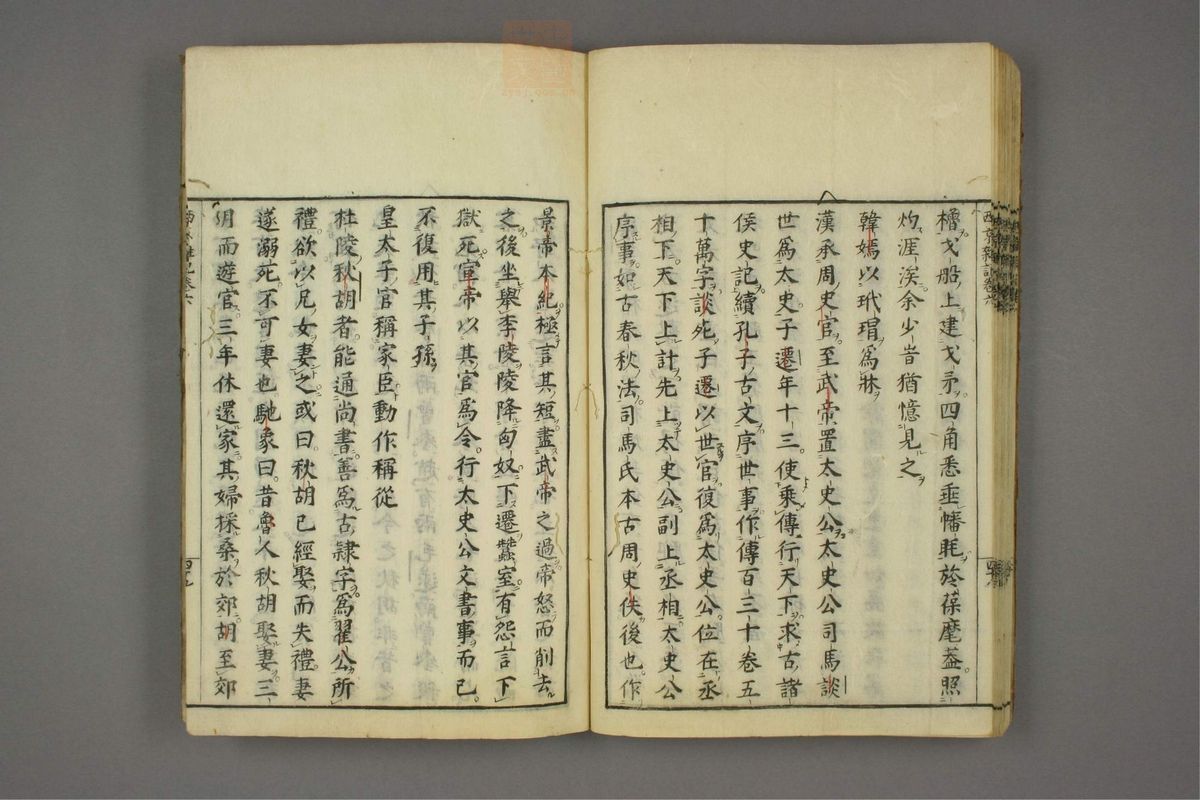 櫓戈船上建戈矛四角悉垂幡眊於葆麾蓋照
灼涯涘余少旹猶憶見之
韓嫣以玳瑁爲牀
漢承周史官至武帝置太史公太史公司馬談
世爲太史子遷年十三使乗傳行天下求古諸
侯史記續孔子古文序世事作傳百三十卷五
十萬字談死子遷以世官復爲太史公位在丞
相下天下上計先上太史公副上丞相太史公
序事如古春秋法司馬氏本古周史佚後也作
景帝本紀極言其短盡武帝之過帝怒而削去
之後坐舉李陵陵降匈奴下遷蠶室有怨言下
獄死宣帝以其官爲令行太史公文書事而已
不復用其子孫
皇太子官稱家臣動作稱從
杜陵秋胡者能通尚書善爲古隷字爲翟公所
禮欲以兄女妻之或曰秋胡已經娶而失禮妻
遂溺死不可妻也馳象曰昔魯人秋胡娶妻三
月而遊官三年休還家其婦採桑於郊胡至郊